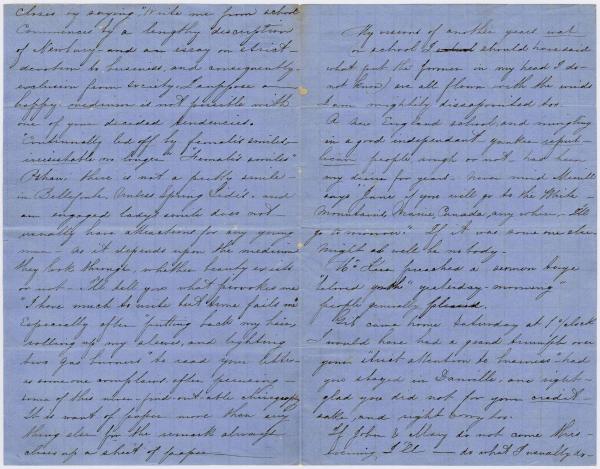 Closes by saying "Write me from school
Commences by a lengthy description
of Newbury and an essay on strict
devotion to business, and consequently
exclusion from society. I suppose a
happy medium is not possible with
of your decided tendencies.
"Eventually led off by female's smiles
irresistible no longer" "Female's smiles"
Pshaw! there is not a pretty smile
in Bellefonte, unless Spring Side's, and
an engaged lady's smile does not
usually have attractions for any young
man - as it depends upon the medium
they look through, whether beauty exists
or not. I'll tell you what provokes me
"I have much to write but time fails me"
Especially after "putting back my hair,
rolling up my sleeves, and lighting
two gas burners" to read your letter
as some one complains after perusing
some of this un-find-out-able chirography
It is want of paper more than any
thing else for the remark always
closes up a sheet of paper
My visions of another years not
in school I should have said
what put the former in my head I do
not know) are all flown with the winds
I am mightily disappointed too.
A New England school, and mingling
in a good independent yankee repub-
lican people, rough or not, had been
my desire for years. Never mind Merrill
says "Jane if you will go to the White
Mountains, Maine, Canada, any where, I'll
go to-morrow." If it was some one else
might as well be nobody.
preached a sermon
"beloved youth" yesterday-morning
people generally pleased.
Gib. came home Saturday at 1 o'clock
I would have had a grand triumph over
your "strict attention to business" had
you stayed in Danville, am right
glad you did not for your credit
sake, and right sorry too.
If John & Mary do not come this
evening, I'll — do what I usually do